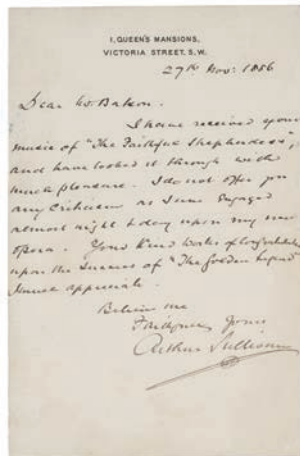 1, QUEEN'S MANSIONS,
VICTORIA STREET, S.W.
27th Nov: 1886
Dear Mr
I have received your
music of "The Faithful Shepherdess",
and have looked it through with
much pleasure. I do not offer you
any criticism as I am engaged
almost night & day upon my new
opera. Your kind words of congratulation
upon the success of "The Golden Legend"
I much appreciate.
Believe me
Yours
Arthur Sullivan